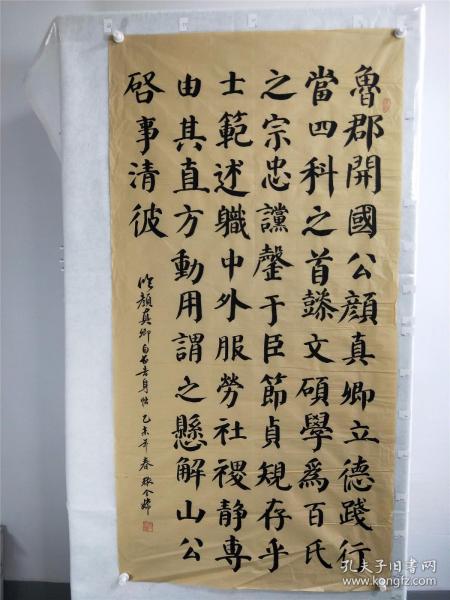 魯郡開國公顔真卿立德踐行
當四科之首懿文碩學爲百氏
之宗忠讜罄于臣節貞規存乎
士範述軄中外服勞社稷靜專
由其直方動用謂之懸解山公
啓事清彼
临顔真卿自书告身帖乙未年春
孔夫子旧书网
www.kongfz.com